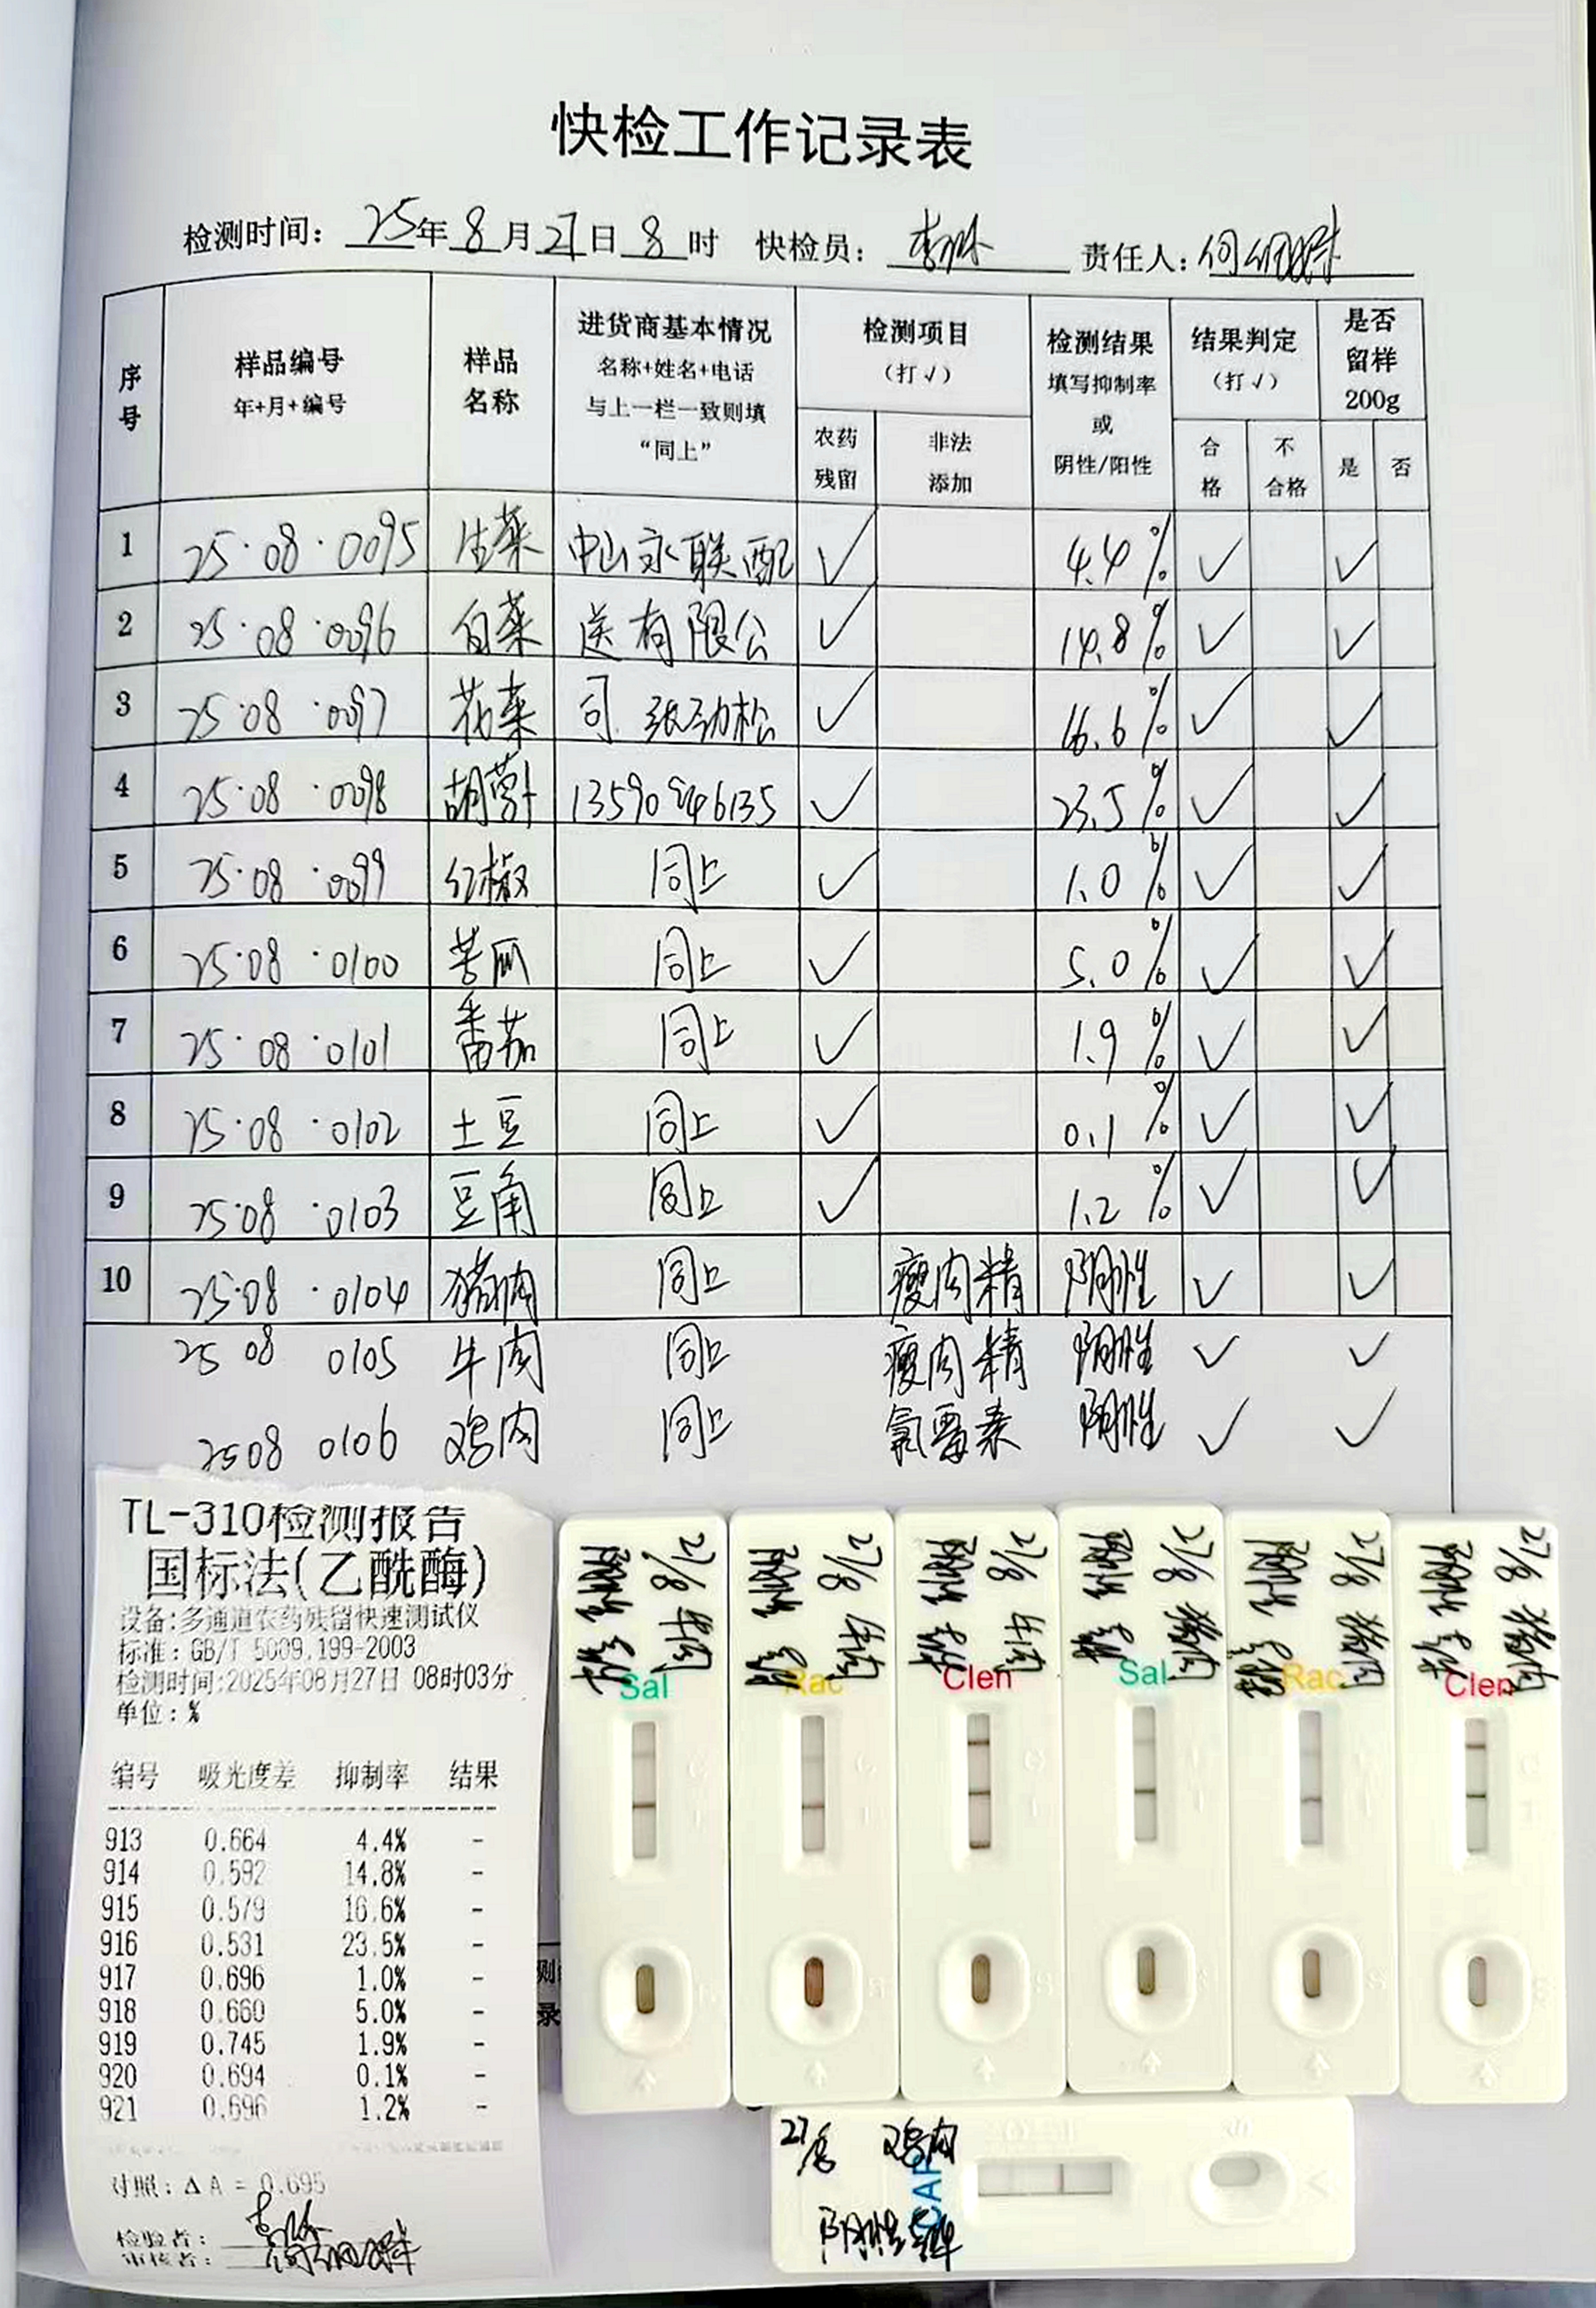 快检工作记录表
检测时间: 25年8月27日8时 快检员: 责任人:
序号 样品编号 年+月+编号 样品名称 进货商基本情况 名称+姓名+电话 与上一栏一致则填 “同上” 检测项目 (打√) 农药残留 非法添加 检测结果 填写抑制率 或 阴性/阳性 结果判定 (打√) 合格 不合格 是否留样 200g 是 否
1 25·08·0095 生菜 中山永联配 ✓ 4.4% ✓ ✓
2 25·08·0096 白菜 送有限公 ✓ 14.8% ✓ ✓
3 25·08·0097 花菜 司 张劲松 ✓ 16.6% ✓ ✓
4 25·08·0098 胡萝卜 13590946135 ✓ 23.5% ✓ ✓
5 25·08·0099 红椒 同上 ✓ 1.0% ✓ ✓
6 25·08·0100 苦瓜 同上 ✓ 5.0% ✓ ✓
7 25·08·0101 番茄 同上 ✓ 1.9% ✓ ✓
8 25·08·0102 土豆 同上 ✓ 0.1% ✓ ✓
9 25·08·0103 豆角 同上 ✓ 1.2% ✓ ✓
10 25·08·0104 猪肉 同上 瘦肉精 阴性 ✓ ✓
25 08 0105 牛肉 同上 瘦肉精 阴性 ✓ ✓
2508 0106 鸡肉 同上 氯霉素 阴性 ✓ ✓
TL-310检测报告
国标法(乙酰酶)
设备:多通道农药残留快速测试仪
标准: GB/T 5009.199-2003
检测时间:2025年08月27日 08时03分
单位: %
编号 吸光度差 抑制率 结果
913 0.664 4.4% -
914 0.592 14.8% -
915 0.579 16.6% -
916 0.531 23.5% -
917 0.696 1.0% -
918 0.660 5.0% -
919 0.745 1.9% -
920 0.694 0.1% -
921 0.696 1.2% -
对照: ΔA = 0.695
检验者:
审核者:
27/8 牛肉
阴性
Sal
27/8 牛肉
阴性
Rac
27/8 牛肉
阴性
Clen
27/8 猪肉
阴性
Sal
27/8 猪肉
阴性
Rac
27/8 猪肉
阴性
Clen
27/8 鸡肉
CAP
阴性